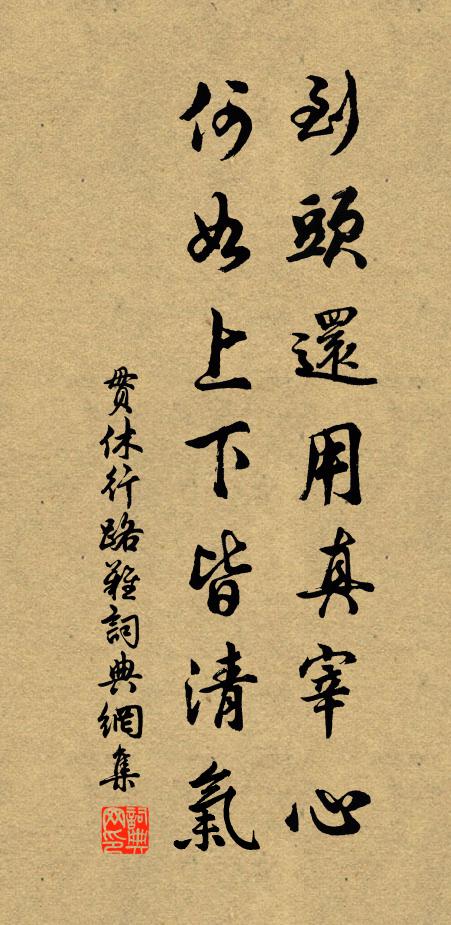 到頭還用真宰心
何如上下皆清氣
貫休行路難詞典網集
詞典網印